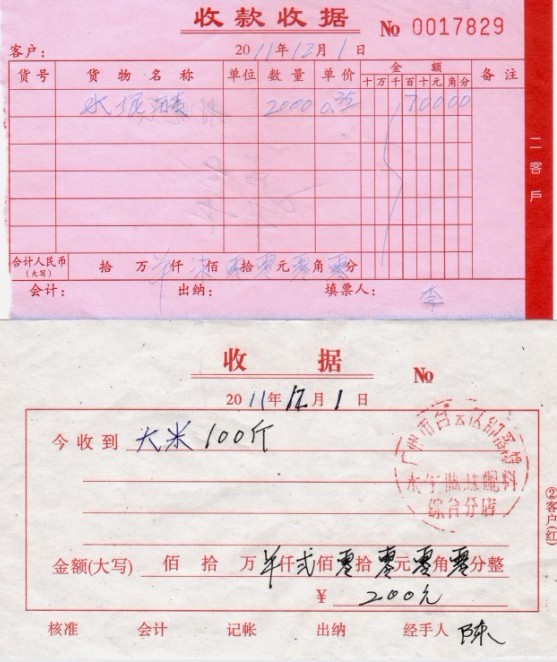 收款收据 No 0017829
客户： 2011年12月1日
货号 货物名称 单位 数量 单价 金额 备注
十 万 千 百 十 元 角 分
水 2000 0.35 70000
二客户
合计人民币 拾 万 仟 柒 佰 零 拾 零 元 零 角 零 分
(大写)
会计： 出纳： 填票人： 李
收据 No
2011年12月1日
今收到 大米 100斤
广州市白云区
综合仔店
②客户(红)
金额(大写) 佰 拾 万 仟 贰 佰 零 拾 零 元 零 角 零 分整
¥ 200元
核准 会计 记帐 出纳 经手人 陈